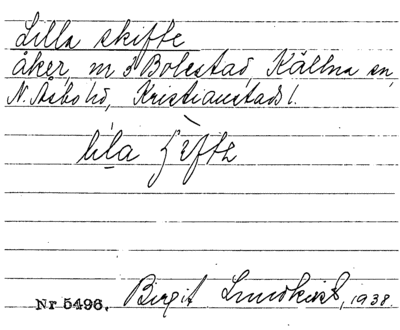 Lilla skifte
åker, m 3 Bolestad, Källna sn,
N. Åsbo hd, Kristianstads l.
lila
Nr 5496. Birgit Lundkvist, 1938.